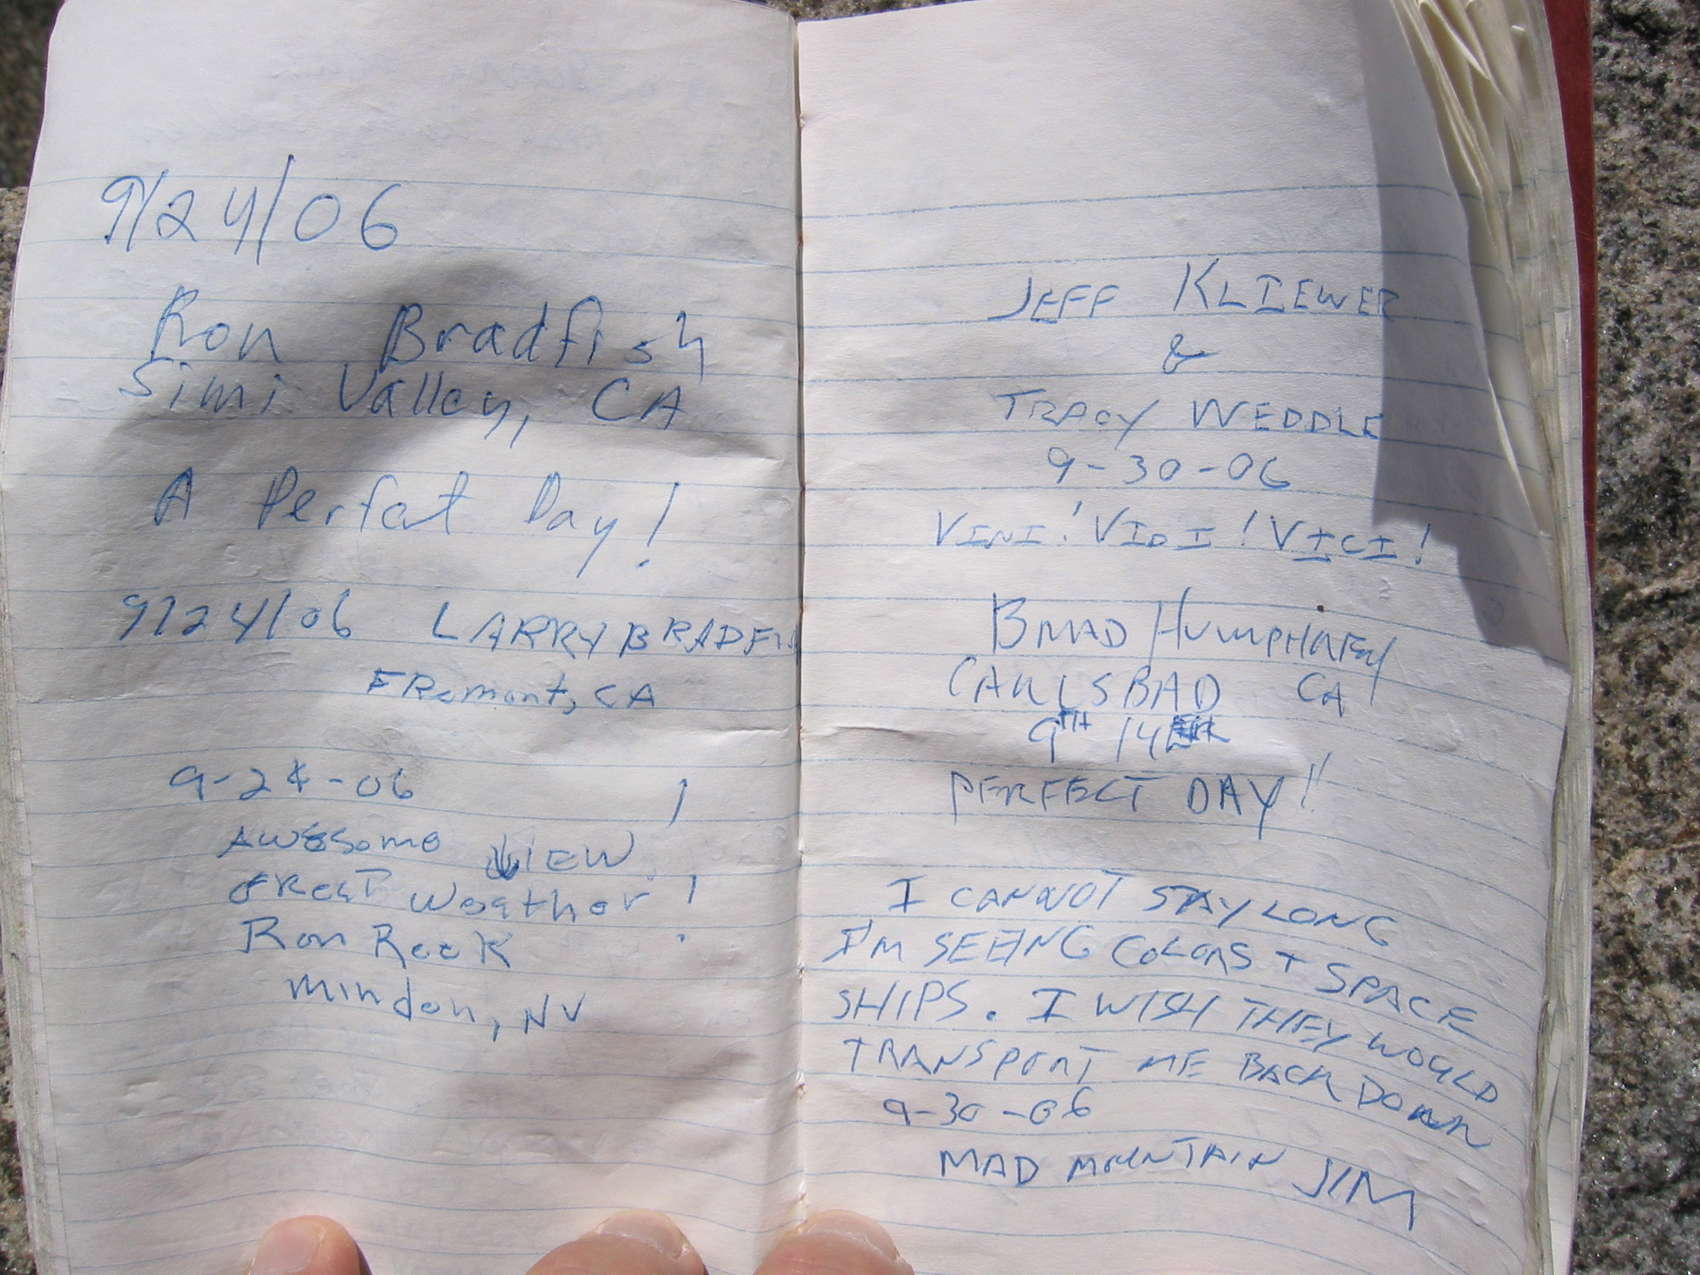 9/24/06
Ron Bradfish
Simi Valley, CA
A Perfect Day!
9/24/06 LARRY BRADFIS
FRemont, CA
9-24-06
AWESome VIEW!
GREAT Weather!
Ron Reek
minden, NV
JEFF KLIEWER
&
TRACY WEDDLE
9-30-06
VINI! VIDI! VICI!
BRAD HUMPHREY
CARLSBAD CA
9TH 14ER
PERFECT DAY!
I CANNOT STAY LONG
I'M SEEING COLORS + SPACE
SHIPS. I WISH THEY WOULD
TRANSPORT ME BACK DOWN
9-30-06
MAD MOUNTAIN JIM